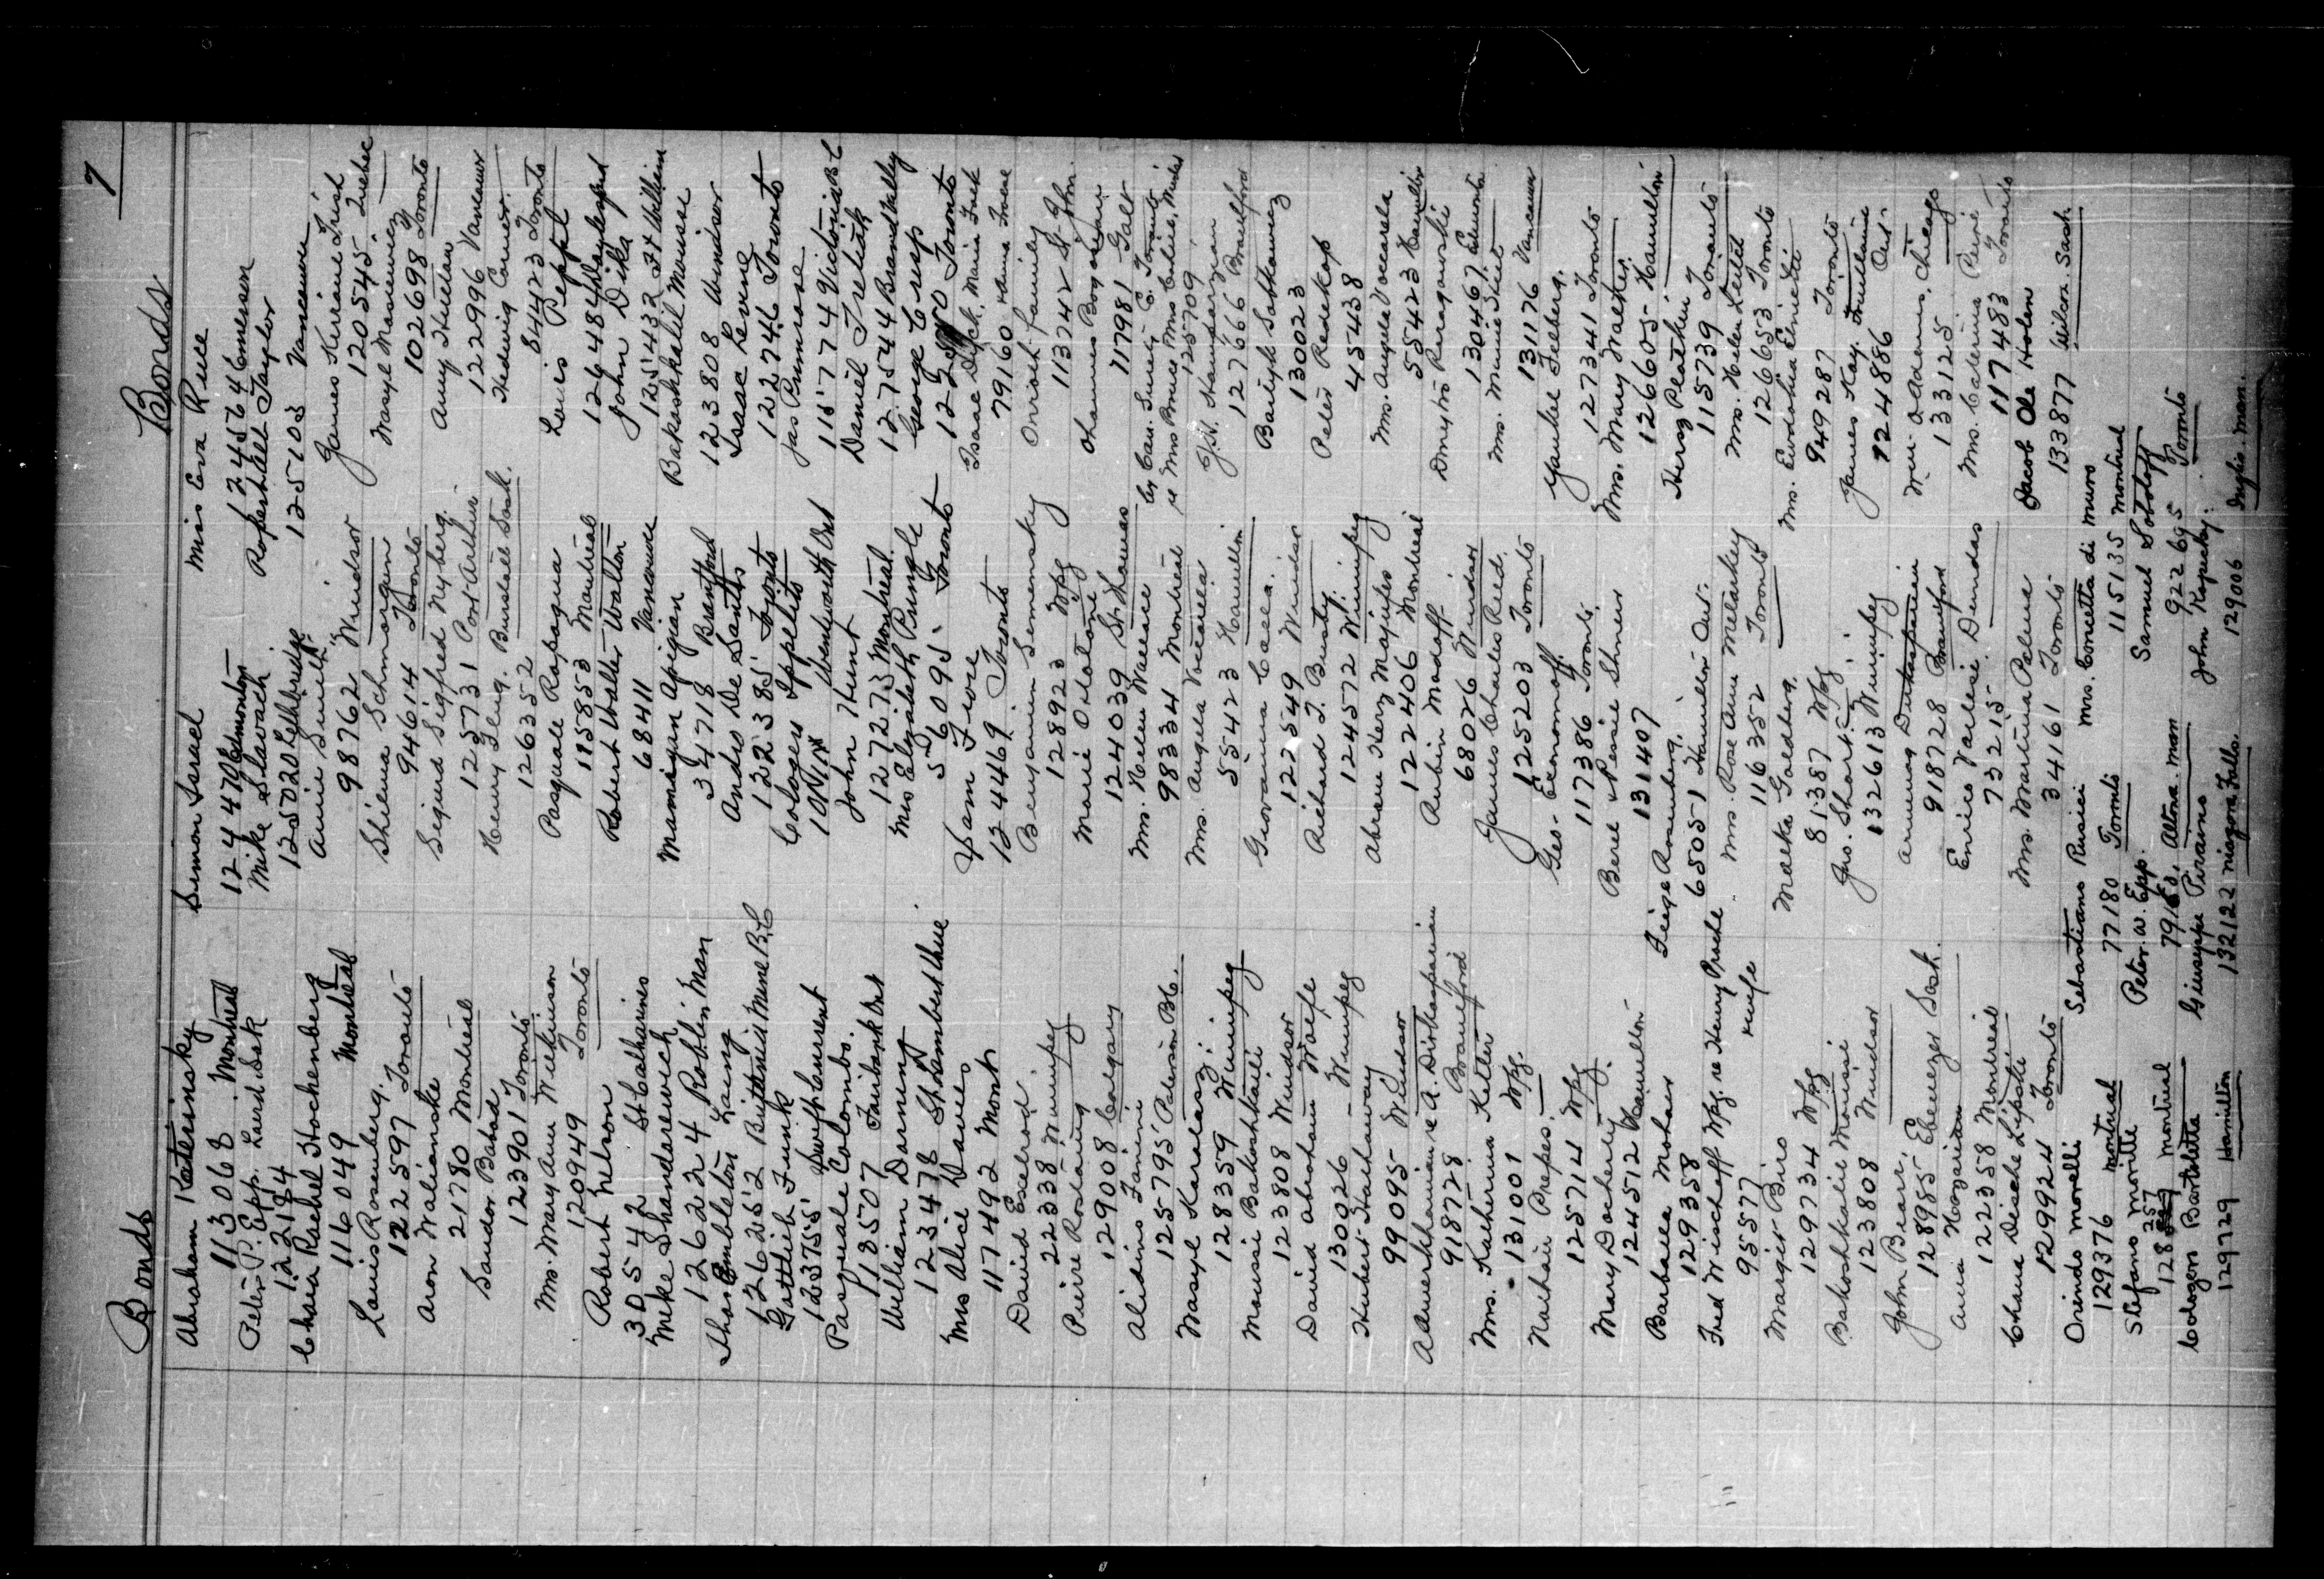 7
Bonds
Bonds
Abraham Katerinsky
113068 Montreal
Peter P. Epp. Laird Sask
122194
Chaia Rachel Hochenberg
116049 Montreal
Louis Rosenberg.
122597 Toronto
Aron Walianske
21780 Montreal
Sandor Bahad
123901 Toronto
Mrs. Mary Ann Wilkinson
120949 Toronto
Robert Nelson
305542 St Catharines
Mike Shanderewich
126224 Roblin Man
Thos Embleton Laing
126252 Butternut Mere B.C
Gottlieb Funk
123755 Swift Current
Pasquale Colombo.
118507 Fairbank Ont
William Dorning
123478
Mrs Alice Davies
117492 Mont
David Excelrod.
22338 Winnipeg
Pierre Rostaing
129008 Calgary
Alidino Fanini
125795 Paterson B.C.
Wasyl Karalasz
128359 Winnipeg
Moussi Bakoshkalil
123808 Windsor
David Abraham Waefe
130026 Winnipeg
Hubert Hathaway
99095 Windsor
re A. Dirkasparian
918728 Brantford
Mrs. Katherina Ketler
131001 Wpg.
Nathan Prepes.
125714 Wpg
Mary Docherty
124512 Hamilton
Barbara Mohacs
129358
Fred Mischeff Wpg. re Henry Prache & wife
95577
Margit Biro
129734 Wpg
Bakoshkalil Moussi
123808 Windsor
John Biarr,
128985 Ebenezer Sask.
Anna Hozarian
122358 Montreal
Chana Dische Lipski
129924 Toronto
Orindo Morelli
129376 Montreal
Stefano Moville
128257 Montreal
Calogero Bartolotta
129229 Hamilton
Simon Israel
124470 Edmonton
Mike Slavach
125020 Lethbridge
Annie Smith
98762 Windsor
Shilema Schmorgun
94614 Toronto
Sigurd Sigfred Nyberg.
125731 Port Arthur
Henry Klug. Burstall Sask.
126352
Pasquale Rapagna
115853 Montreal
Robert Walter Walton
68411 Vancouver
Mamigan Apigian
34718 Brantford
Andro De Santis
122385 Toronto
Cologero Ippolito
Wentworth Ont
John Hunt
127273 Montreal
Mrs Elizabeth Pringle
56095 Toronto
Sam Fiore
124469. Toronto
Benjamin Semensky
128923 Wpg
Marie Odotone
124039 St. Thomas
Mrs. Helen Wallace
98334 Montreal
Mrs. Angela Vaccarela
55423 Hamilton
Giovanna Calla.
122549 Windsor
Richard T. Busty
124572 Winnipeg
Abram Herz Majufes
122406 Montreal
Rubin Madoff
68026 Windsor
James Charles Reed.
125203 Toronto
Geo. Economoff.
117386 Toronto.
Berel & Pessie Shner
131407
Feige Rosenberg.
65051 Hamilton Ont.
Mrs. Rose Ann Melarkey
116352 Toronto
Malka Goldberg.
81387 Wpg
Jno. Shart.
132613 Winnipeg
918728 Brantford
Enrico Varlese Dundas
73215
Mrs. Martina Palma
34161 Toronto
Sebastiano Rusici
77180 Toronto
Peter W. Epp.
Altona. Man
Giuseppe Piraino
132122 Niagara Falls.
Miss Eva Rule
124564 Emerson
Ropeshall Taylor
125103 Vancouver
James Kuriane Luis
120545 Quebec
Wasyl Manciewicz
102698 Toronto
Amy Hulin
122996 Vancouver
Hedwig Conver.
84423 Toronto
Louis Peppl
126484
John Dika
125432 Ft William
Bakashkalil Mousse
123808 Windsor
Isaac Levine
122746 Toronto
Jas Primrose
115774 Victoria BC
Daniel Treliath
127544 Broad Valley
George Crisp
Toronto
Isaac Dyck, Maria Friek
79160
Onvisk Family
113242 St. John.
Ohannes Bogosian
117981 Galt
by Can. Surety C. Toronto
re Mrs Bruss
125709
127666 Brantford
Bartyk Sabkowicz
130023
Peter Redekop
45438
Mrs. Angela Vaccarela
55423 Hamilton
Dmytro Ramanowski
130467. Edmonton
Mrs. Minnie Shiel
131176 Vancouver
Yankoe Feeberg.
127341 Toronto
Mrs. Mary Walker.
126605 Hamilton
Hersz Plotkin
115739 Toronto
Mrs. Helen Leital
126653 Toronto
Mrs. Evdoshia
949287 Toronto
James Kay. Ont.
924886
Wm. Adams. Chicago
133125
Mrs. Caterina Perri
117483 Toronto
Jacob Ole Holen
133877 Wilcox. Sask.
Mrs. Concetta di Muro
115135 Montreal
Samuel Soboloff
922695 Toronto
John Kopecky.
129006 Inglis. Man.